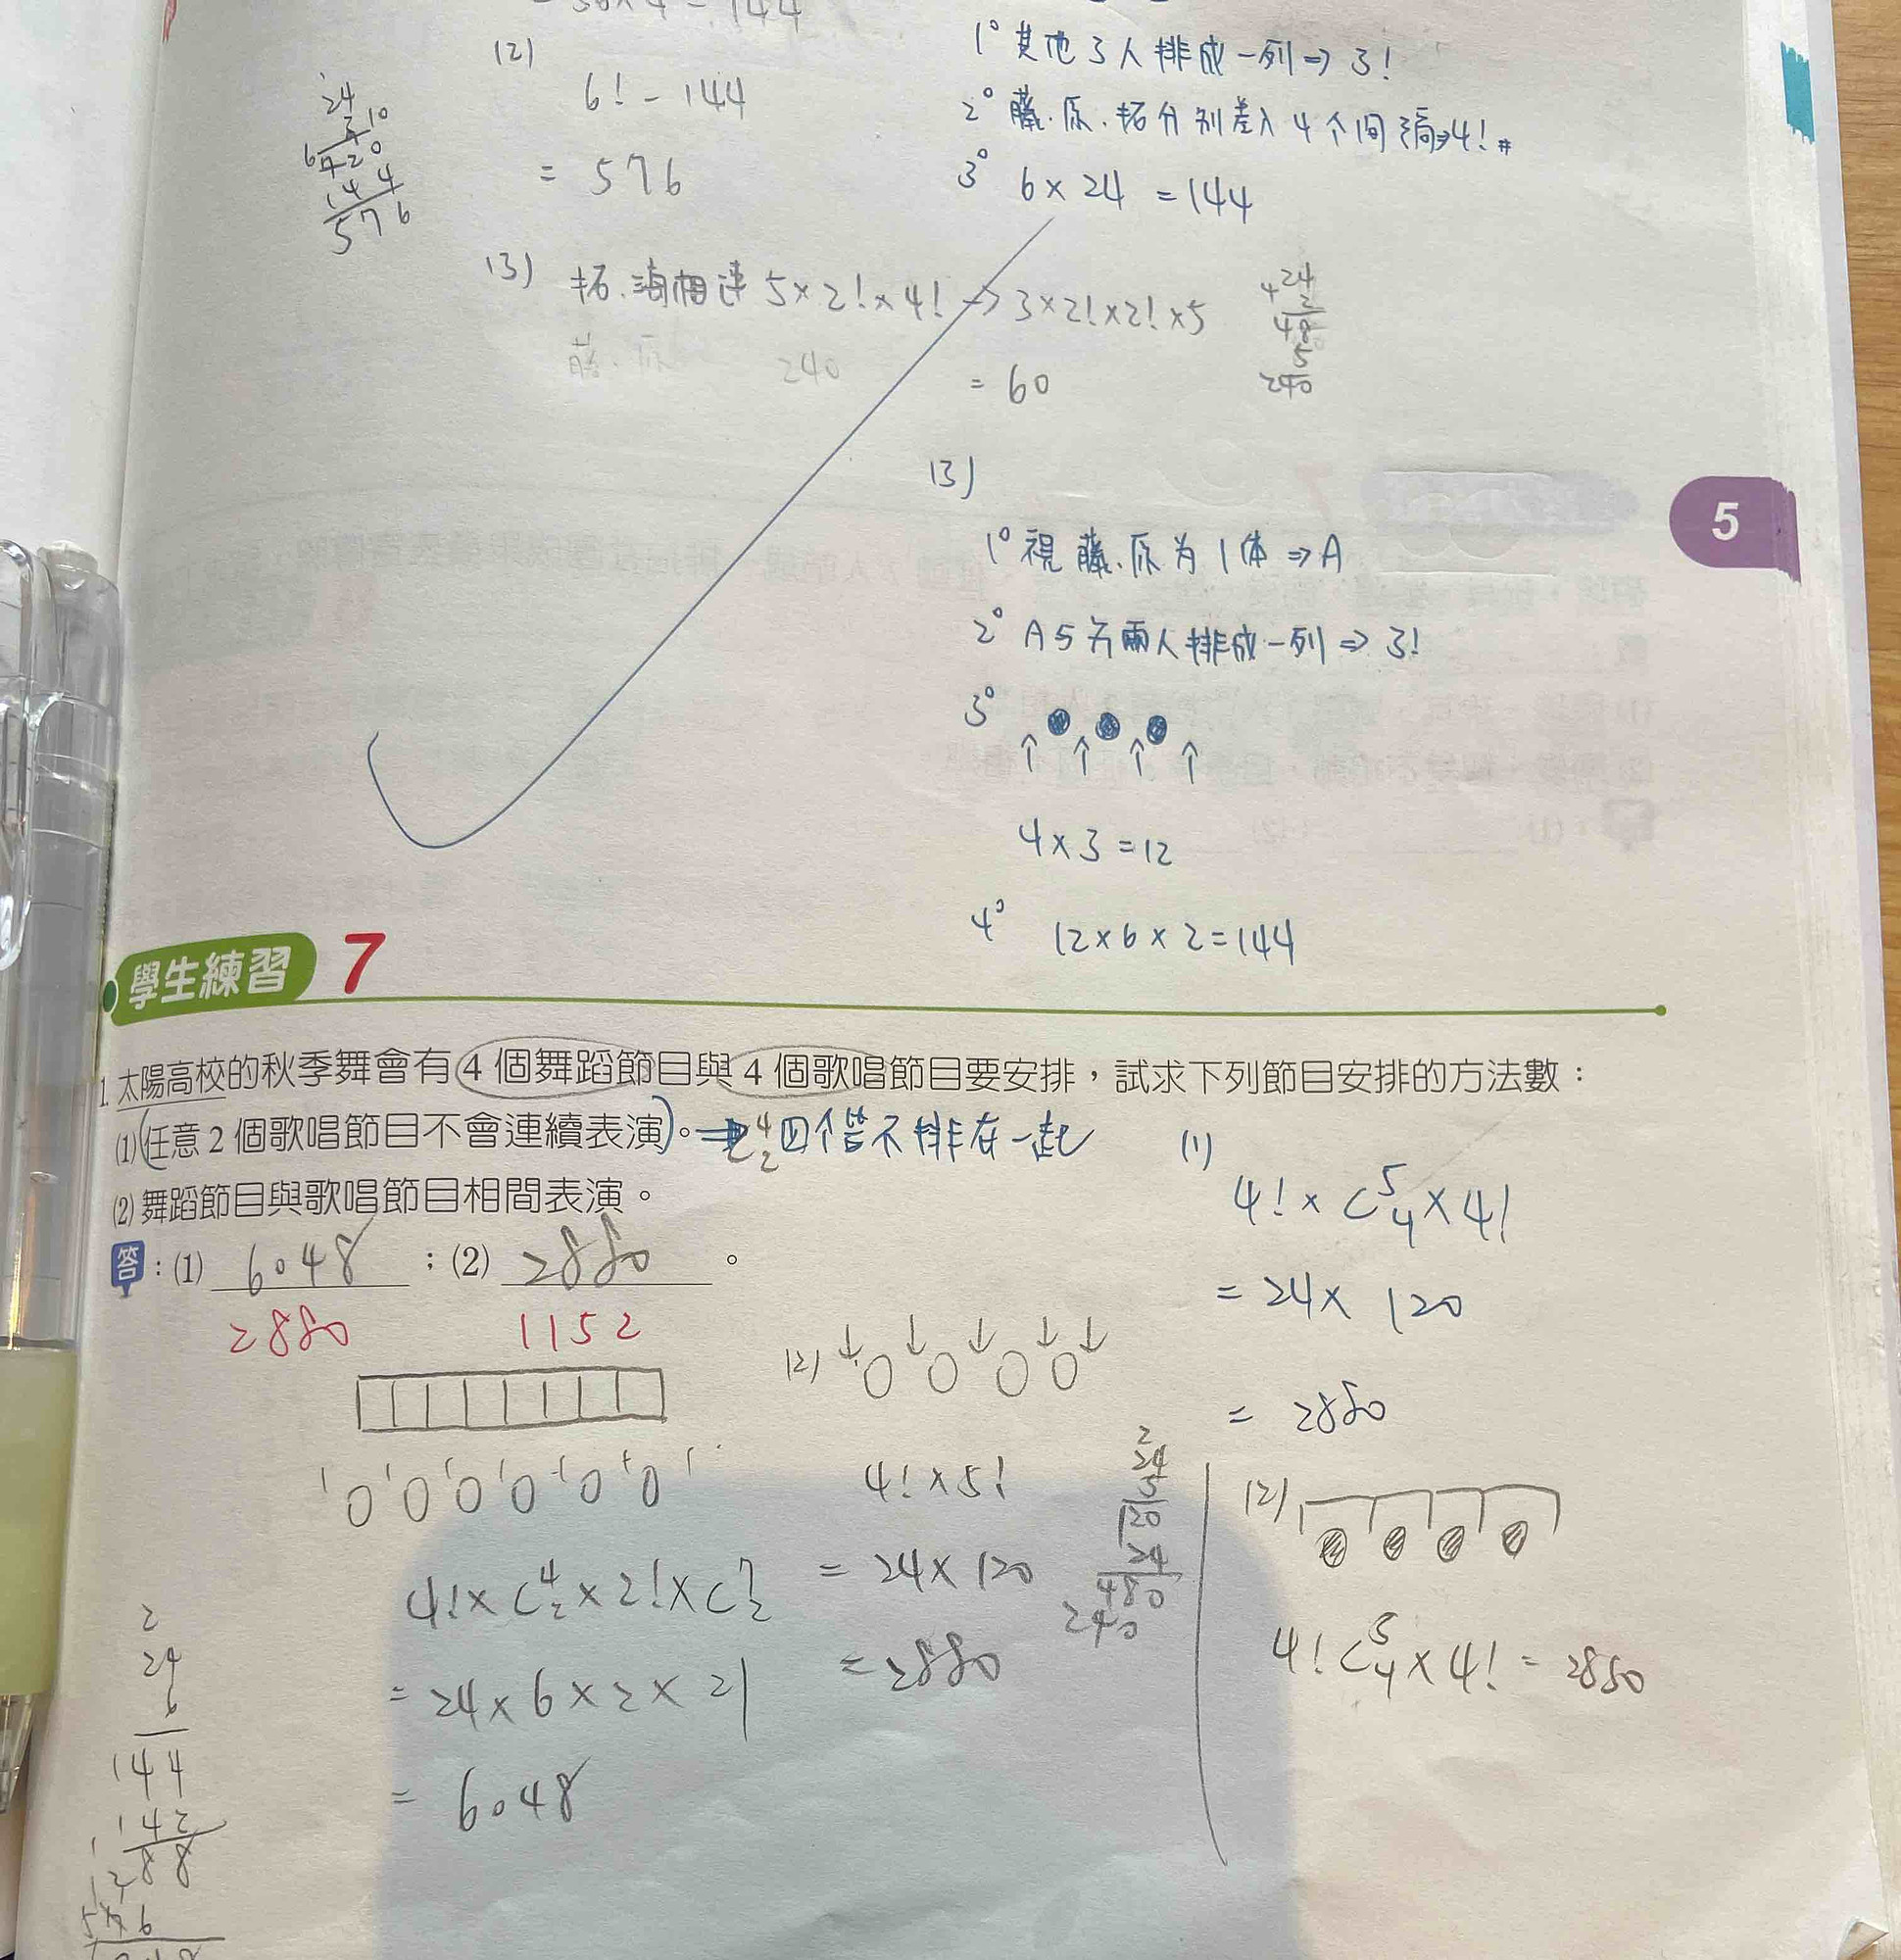 (2)
6! - 144
= 576
24
30
720
144
576
1° 其他3人排成一列⇒3!
2° 藤.原.拓分別差入4个间隔⇒4!#
3° 6×24 =144
(3) 拓.海相連 5×2!×4! → 3×2!×2!×5
藤.原 240
= 60
24
2
48
5
240
(3)
1° 視藤.原为1体⇒A
2° A与另兩人排成一列⇒3!
3° ↑ ↑ ↑ ↑
4×3=12
4° 12×6×2=144
5
學生練習 7
1. 太陽高校的秋季舞會有4個舞蹈節目與4個歌唱節目要安排,試求下列節目安排的方法數:
(1)(任意2個歌唱節目不會連續表演)。四个皆不排在一起
(2)舞蹈節目與歌唱節目相間表演。
答:(1) 6048 ;(2) 2880 。
2880 1152
(1)
4! × C⁵₄ × 4!
= 24× 120
= 2880
(2) ↓O↓O↓O↓O↓
4!×5!
= 24×120
=2880
2
24
5
120
24
480
240
(2)
4! C⁵₄ ×4! = 2880
4!×C⁴₂×2!×C⁷₂
= 24×6×2×21
= 6048
2
24
6
144
42
288